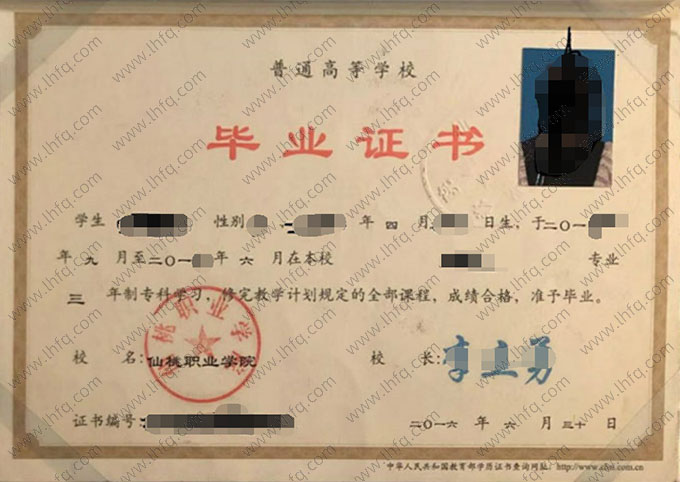 普通高等学校
毕业证书
学生 性别 一 年 四 月 日生，于二〇一
年 九 月至二〇一 年 六 月在本校 专业
三 年制专科学习，修完教学计划规定的全部课程，成绩合格，准予毕业。
校 名：仙桃职业学院 校 长：李立勇
证书编号： 二〇一六 年 六 月 三十 日
中华人民共和国教育部学历证书查询网址：http://www.chsi.com.cn
www.lhfq.com